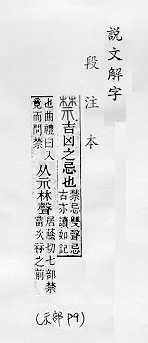 說文解字
段注本
禁 吉凶之忌也禁忌雙聲忌古亦讀如記
也曲禮曰入竟而問禁从示林聲居蔭切七部禁當次祲之前
(示部 P9)